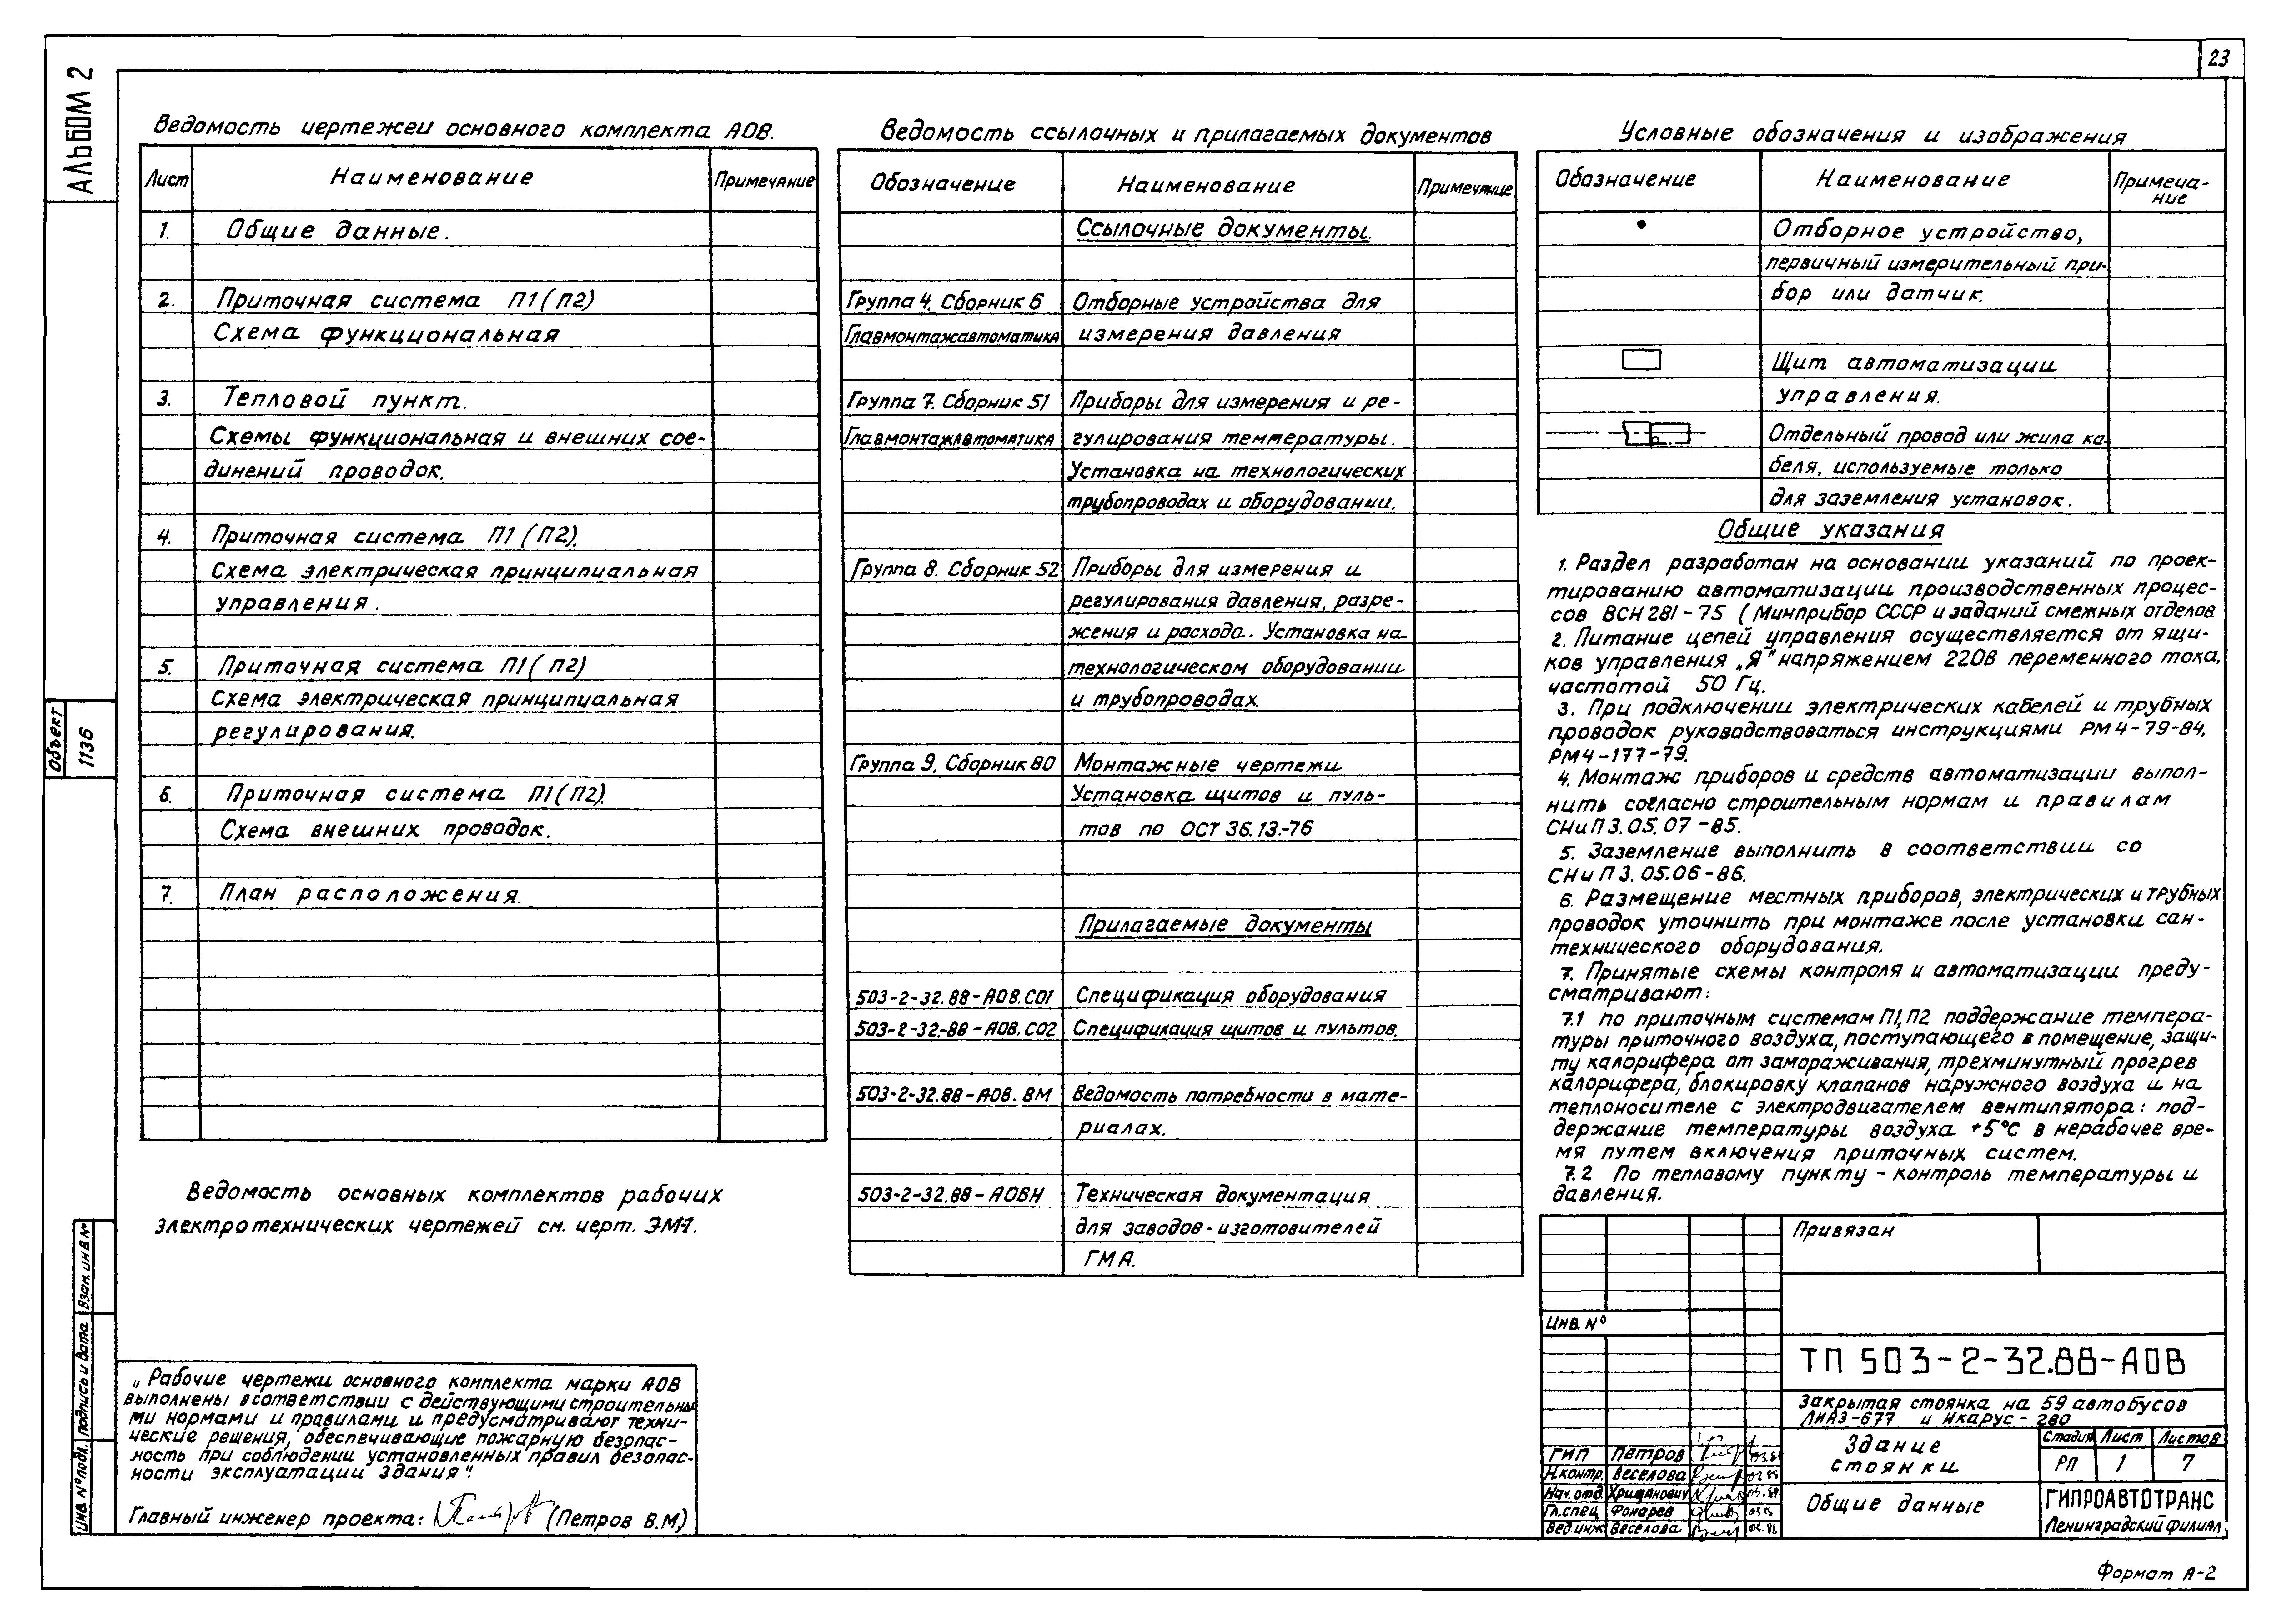 23
АЛЬБОМ 2
Ведомость чертежей основного комплекта АОВ.
Лист Наименование Примечание
1. Общие данные.
2. Приточная система П1(П2)
Схема функциональная
3. Тепловой пункт.
Схемы функциональная и внешних сое-
динений проводок.
4. Приточная система П1(П2).
Схема электрическая принципиальная
управления.
5. Приточная система П1(П2)
Схема электрическая принципиальная
регулирования.
6. Приточная система П1(П2).
Схема внешних проводок.
7. План расположения.
Ведомость основных комплектов рабочих
электротехнических чертежей см. черт. ЭМ-1.
Объект
1136
Взам. инв №
Подпись и дата
Инв. № подл.
„Рабочие чертежи основного комплекта марки АОВ
выполнены в соответствии с действующими строительны-
ми нормами и правилами и предусматривают техни-
ческие решения, обеспечивающие пожарную безопас-
ность при соблюдении установленных правил безопас-
ности эксплуатации здания".
Главный инженер проекта: (Петров В.М.)
Ведомость ссылочных и прилагаемых документов
Обозначение Наименование Примечание
Ссылочные документы.
Группа 4. Сборник 6 Отборные устройства для
Главмонтажавтоматика измерения давления
Группа 7. Сборник 51 Приборы для измерения и ре-
Главмонтажавтоматика гулирования температуры.
Установка на технологических
трубопроводах и оборудовании.
Группа 8. Сборник 52 Приборы для измерения и
регулирования давления, разре-
жения и расхода. Установка на
технологическом оборудовании
и трубопроводах.
Группа 9. Сборник 80 Монтажные чертежи
Установка щитов и пуль-
тов по ОСТ 36.13.-76
Прилагаемые документы
503-2-32.88-АОВ.СО1 Спецификация оборудования
503-2-32-88-АОВ.СО2 Спецификация щитов и пультов.
503-2-32.88-АОВ. ВМ Ведомость потребности в мате-
риалах.
503-2-32.88-АОВН Техническая документация
для заводов-изготовителей
ГМА.
Условные обозначения и изображения
Обозначение Наименование Примеча-
ние
Отборное устройство,
первичный измерительный при-
бор или датчик.
Щит автоматизации
управления.
Отдельный провод или жила ка-
беля, используемые только
для заземления установок.
Общие указания
1. Раздел разработан на основании указаний по проек-
тированию автоматизации производственных процес-
сов ВСН 281-75 (Минприбор СССР и заданий смежных отделов
2. Питание цепей управления осуществляется от ящи-
ков управления „Я" напряжением 220В переменного тока,
частотой 50 Гц.
3. При подключении электрических кабелей и трубных
проводок руководствоваться инструкциями РМ4-79-84,
РМ4-177-79.
4. Монтаж приборов и средств автоматизации выпол-
нить согласно строительным нормам и правилам
СНиП 3.05.07-85.
5. Заземление выполнить в соответствии со
СНиП 3.05.06-86.
6. Размещение местных приборов, электрических и трубных
проводок уточнить при монтаже после установки сан-
технического оборудования.
7. Принятые схемы контроля и автоматизации преду-
сматривают:
7.1 по приточным системам П1,П2 поддержание темпера-
туры приточного воздуха, поступающего в помещение, защи-
ту калорифера от замораживания, трехминутный прогрев
калорифера, блокировку клапанов наружного воздуха и на
теплоносителе с электродвигателем вентилятора: под-
держание температуры воздуха +5°С в нерабочее вре-
мя путем включения приточных систем.
7.2 По тепловому пункту - контроль температуры и
давления.
Привязан
Инв. №
ТП 503-2-32.88-АОВ
Закрытая стоянка на 59 автобусов
ЛиАЗ-677 и Икарус-280
Здание
стоянки
Стадия Лист Листов
РП 1 7
Общие данные
ГИПРОАВТОТРАНС
Ленинградский филиал
ГИП Петров
Н.контр. Веселова
Нач.отд. Хришанович
Гл.спец. Фонарев
Вед.инж. Веселова
Формат А-2